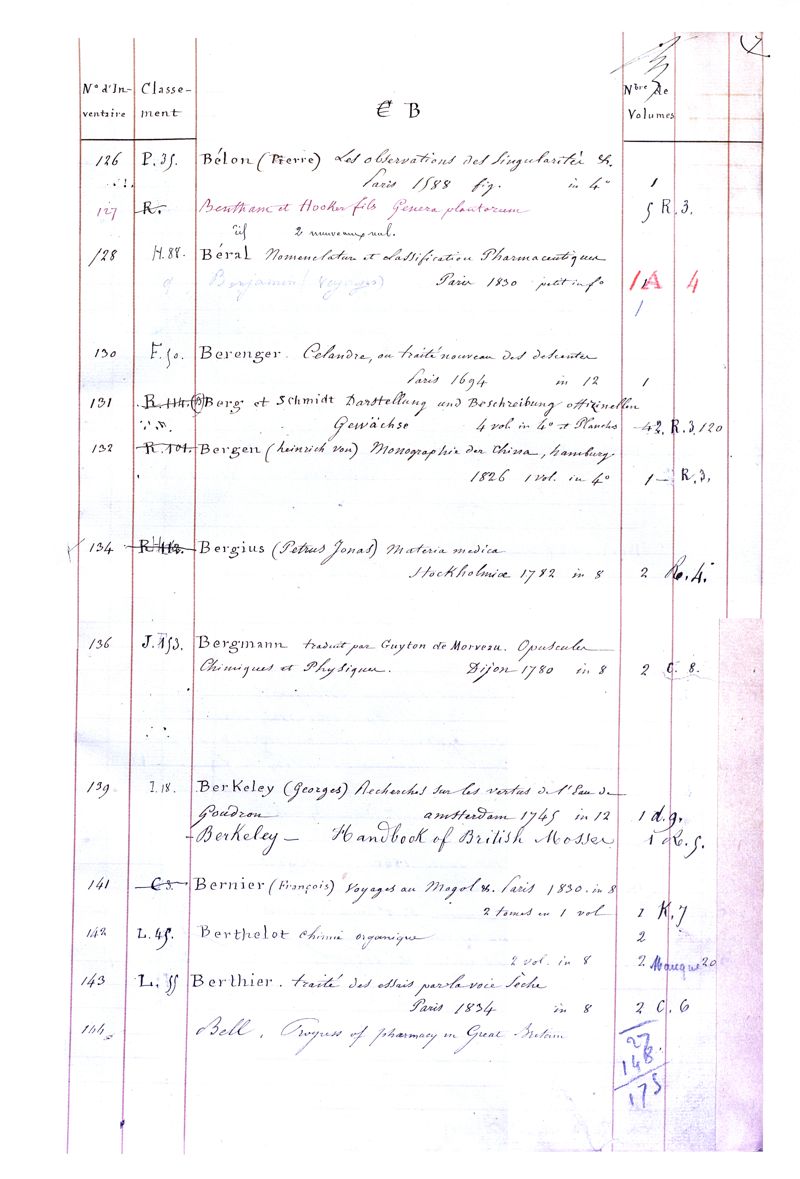 N° d'In- Classe- Nbre de
ventaire ment B Volumes
126 P. 35. Bélon (Pierre) Les observations des singularités &.
Paris 1588 fig. in 4° 1
127 R. Bentham et Hooker fils Genera plantarum 5 R. 3.
2 nouveaux vol.
128 H. 88. Béral Nomenclature et classification Pharmaceutiques
Benjamin (voyages) Paris 1830 petit in f° 1 A 4
1
130 F. 50. Berenger. Celandre, ou traité nouveau des descentes
Paris 1694 in 12 1
131 R. 114. Berg et Schmidt Darstellung und Beschreibung offizinellen
Gewächse 4 vol in 4° et Planches 4 R. 3. 120
132 R. 101. Bergen (heinrich von) Monographie der China, hamburg
1826 1 vol. in 4° 1 – R. 3.
134 Bergius (Petrus Jonas) Materia medica
Stockholmiæ 1782 in 8 2 R. 4.
136 J. 153. Bergmann traduit par Guyton de Morveau. Opuscules
Chimiques et Physiques. Dijon 1780 in 8 2 C. 8.
139 I. 18. Berkeley (Georges) Recherches sur les vertus de l'Eau de
Goudron amsterdam 1745 in 12 1 d. 9.
– Berkeley – Handbook of British Mosses 1 R. 5.
141 C 3. Bernier (François) Voyages au Mogol &. Paris 1830. in 8
2 tomes en 1 vol 1 K. 7
142 L. 45. Berthelot chimie organique 2
2 vol. in 8 2 Manque 20
143 L. 55 Berthier. traité des essais par la voie sèche
Paris 1834 in 8 2 C. 6
144 Bell. Progress of pharmacy in Great Britain
27
148
175